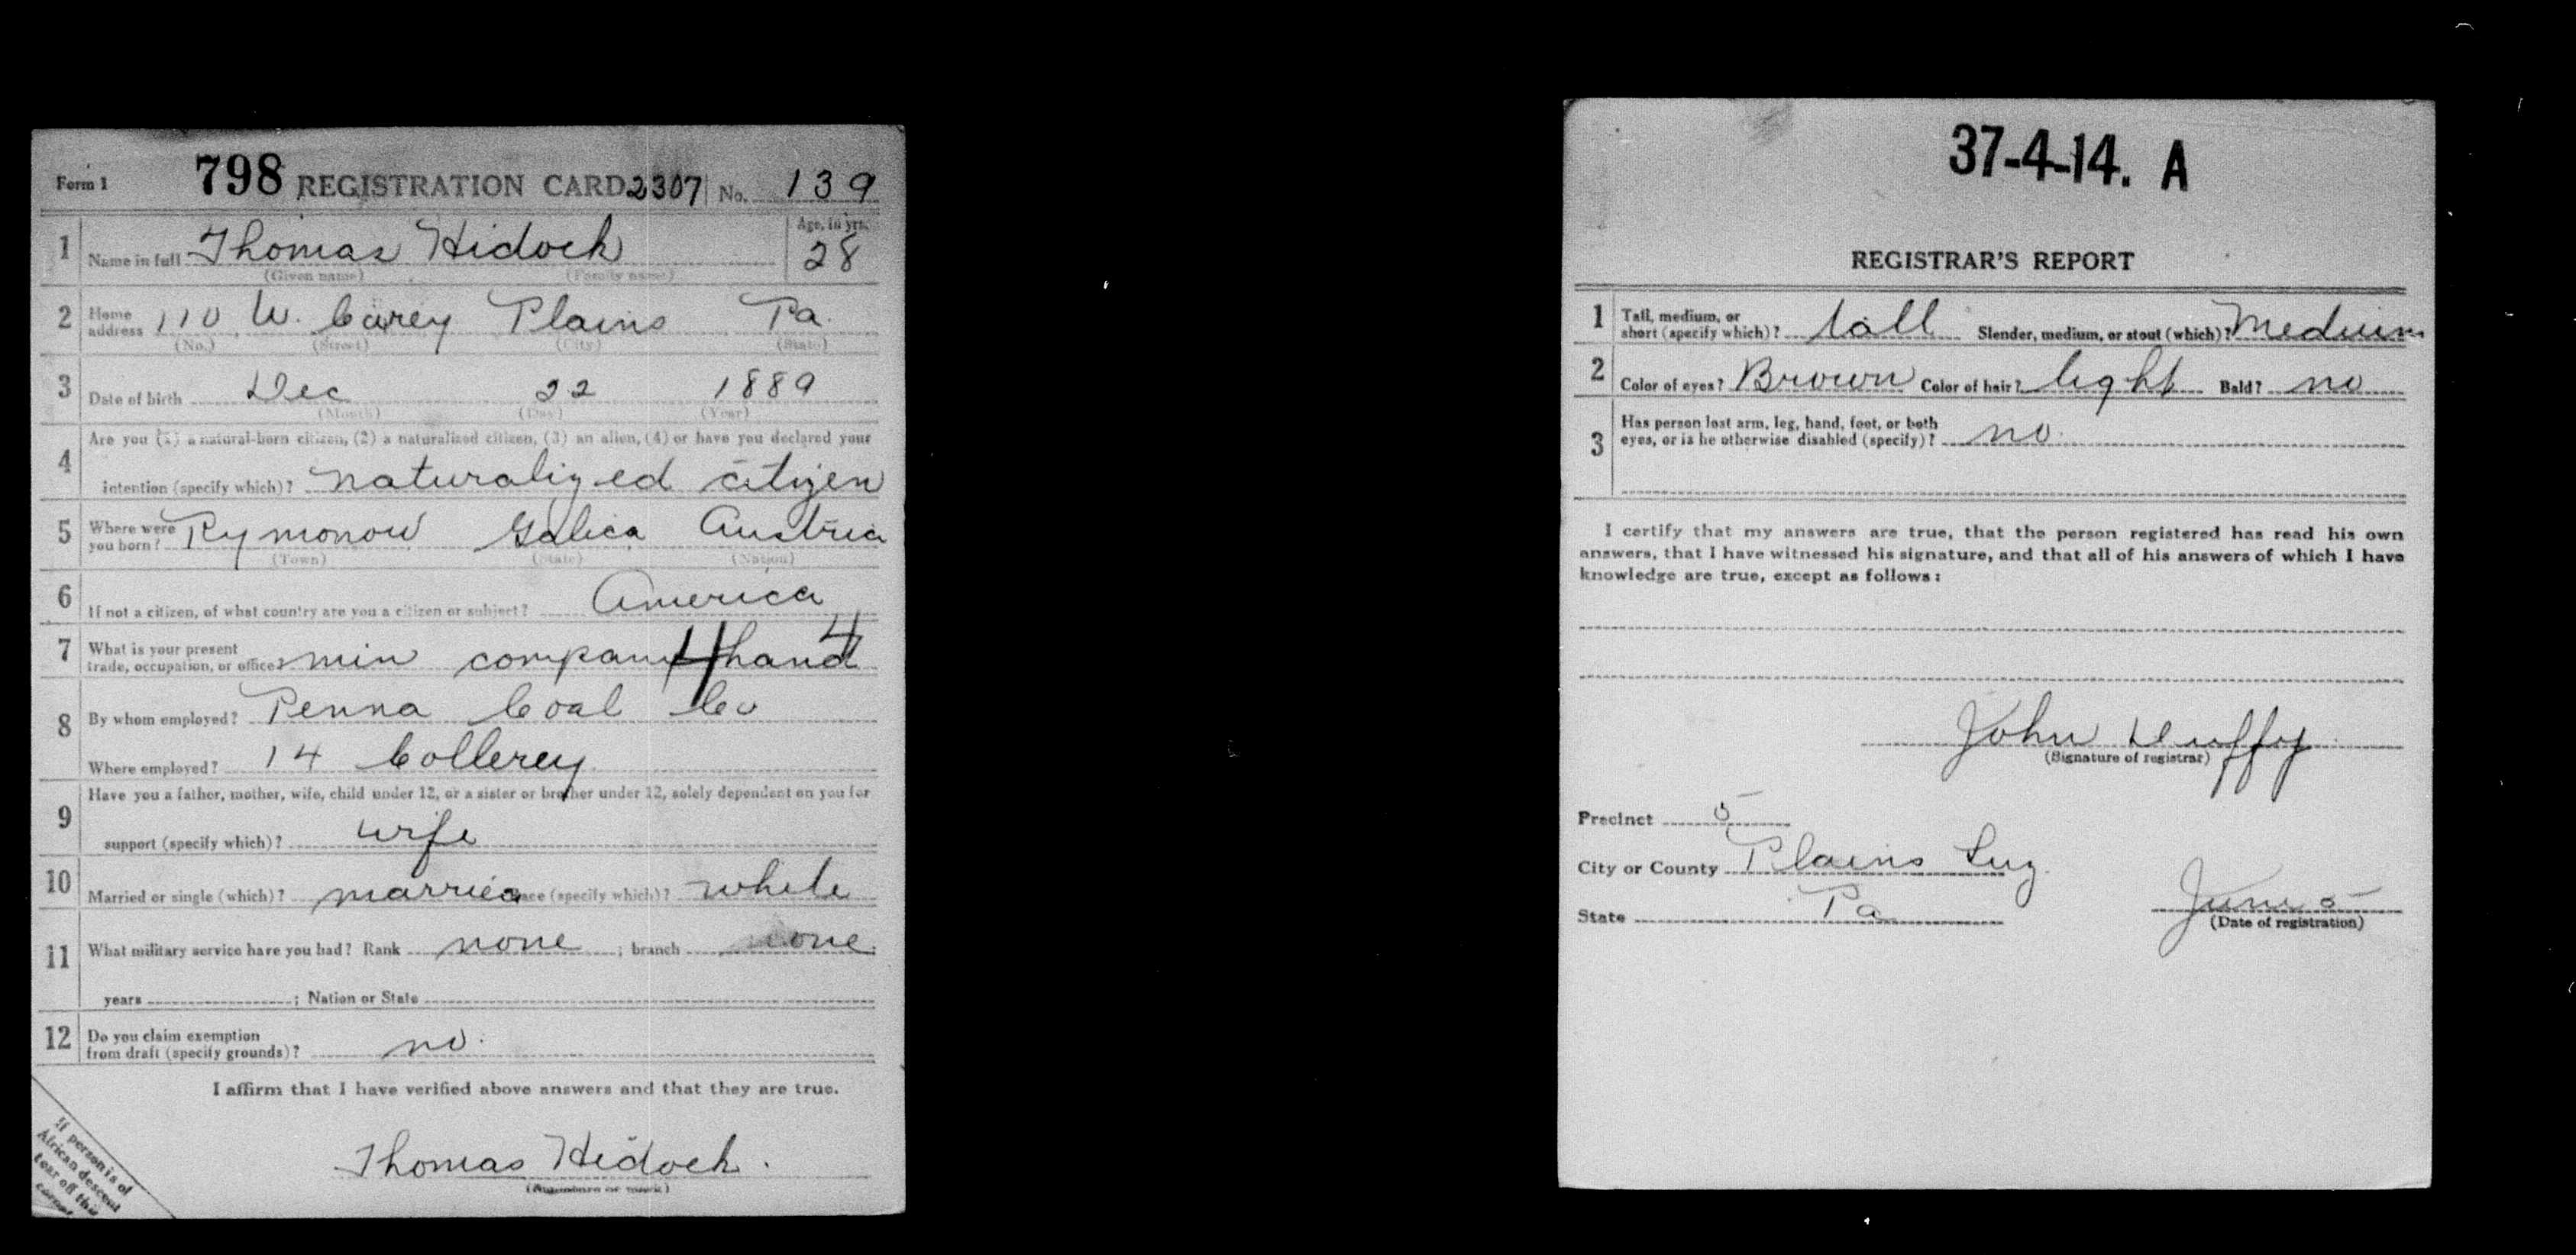 Form 1 798 REGISTRATION CARD 2307 No. 139
1 Name in full Thomas Hidock Age, in yrs. 28
(Given name) (Family name)
2 Home address 110 W. Carey Plains Pa.
(No.) (Street) (City) (State)
3 Date of birth Dec 22 1889
(Month) (Day) (Year)
4 Are you (1) a natural-born citizen, (2) a naturalized citizen, (3) an alien, (4) or have you declared your
intention (specify which)? naturalized citizen
5 Where were you born? Rymonow Galica Austria
(Town) (State) (Nation)
6 If not a citizen, of what country are you a citizen or subject? America
7 What is your present
trade, occupation, or office? min company hand 4 4
8 By whom employed? Penna Coal Co
Where employed? 14 Collerey
9 Have you a father, mother, wife, child under 12, or a sister or brother under 12, solely dependent on you for
support (specify which)? wife
10 Married or single (which)? married Race (specify which)? white
11 What military service have you had? Rank none ; branch none
years ; Nation or State
12 Do you claim exemption
from draft (specify grounds)? no.
I affirm that I have verified above answers and that they are true.
Thomas Hidock.
(Signature or mark)
If person is of
African descent
tear off this
corner
37-4-14. A
REGISTRAR'S REPORT
1 Tall, medium, or
short (specify which)? tall Slender, medium, or stout (which)? Medium
2 Color of eyes? Brown Color of hair? light Bald? no
3 Has person lost arm, leg, hand, foot, or both
eyes, or is he otherwise disabled (specify)? no.
I certify that my answers are true, that the person registered has read his own
answers, that I have witnessed his signature, and that all of his answers of which I have
knowledge are true, except as follows:
John Duffy
(Signature of registrar)
Precinct 5
City or County Plains Luz.
State Pa June 5
(Date of registration)